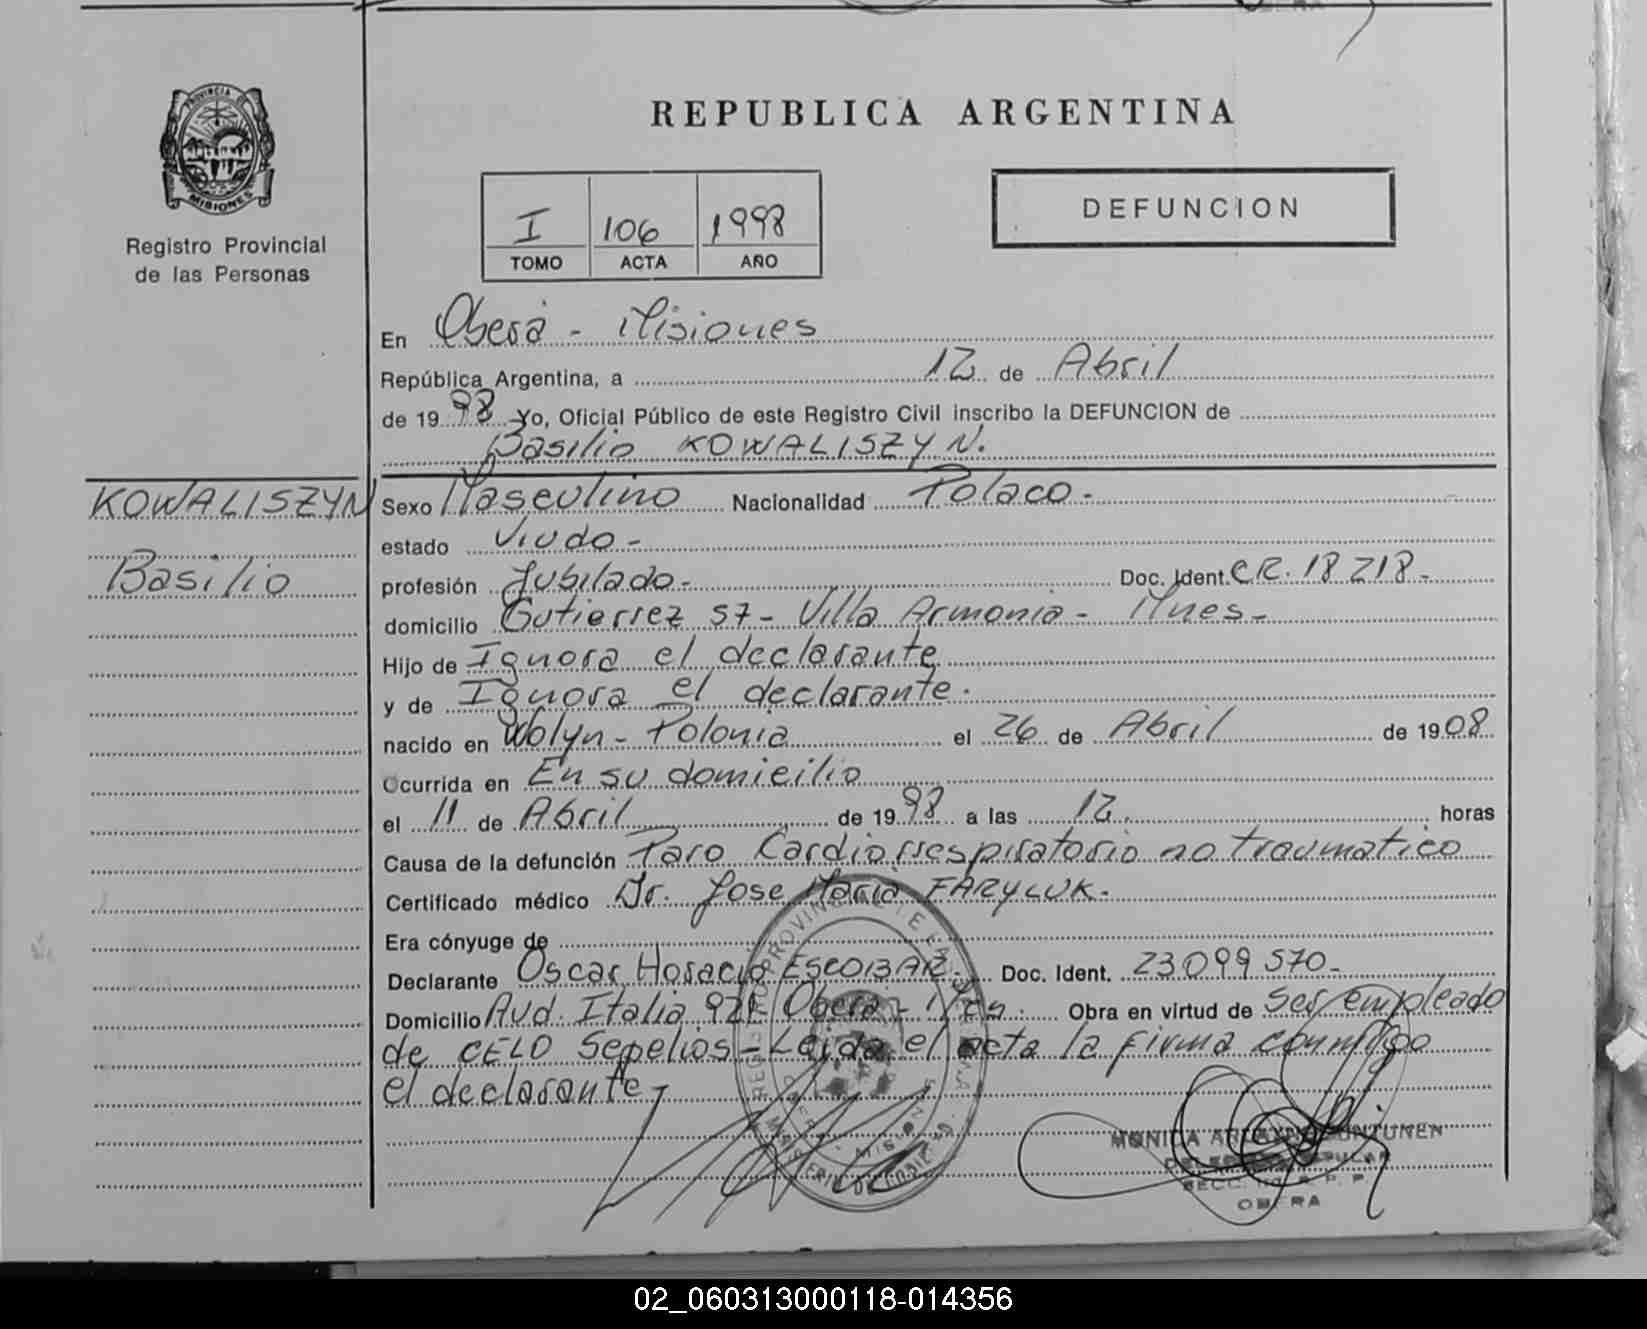 PROVINCIA DE
MISIONES
Registro Provincial
de las Personas
REPUBLICA ARGENTINA
I 106 1998
TOMO ACTA AÑO
DEFUNCION
En Oberá - Misiones
República Argentina, a 12 de Abril
de 1998 Yo, Oficial Público de este Registro Civil inscribo la DEFUNCION de
Basilio KOWALISZYN.
KOWALISZYN
Basilio
Sexo Masculino Nacionalidad Polaco-
estado Viudo-
profesión Jubilado- Doc. Ident. CR. 18218-
domicilio Gutierrez 57- Villa Armonia- Mnes-
Hijo de Ignora el declarante
y de Ignora el declarante.
nacido en Wolyn- Polonia el 26 de Abril de 1908
Ocurrida en En su domicilio
el 11 de Abril de 1998 a las 12. horas
Causa de la defunción Paro Cardiorrespiratorio no traumatico
Certificado médico Dr. Jose Maria FARYLUK.
Era cónyuge de
Declarante Oscar Horacio ESCOBAR- Doc. Ident. 23099570-
Domicilio Avd. Italia 921 Oberá - Mnes. Obra en virtud de Ser empleado
de CELO Sepelios - Leida el acta la firma conmigo
el declarante-
MONICA
SECC.
OBERA
02_060313000118-014356